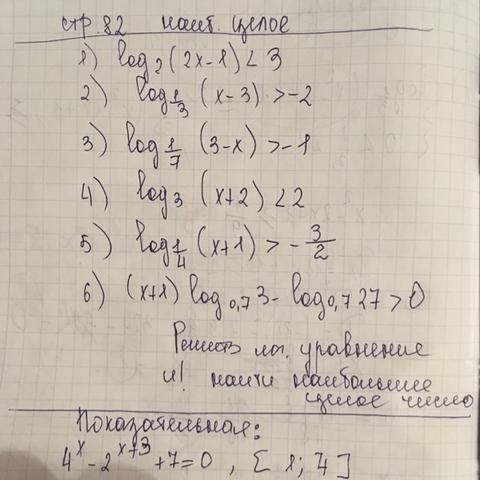 стр. 82 наиб. целое
1) log₂(2x-1)<3
2) log_{1/3}(x-3)>-2
3) log_{1/7}(3-x)>-1
4) log₃(x+2)<2
5) log_{1/4}(x+1)>-3/2
6) (x+1)log_{0,7}3-log_{0,7}27>0
Решить уравнение
и! найти наибольшее
целое число
Показательная:
4^x-2^{x+3}+7=0, [1; 7]